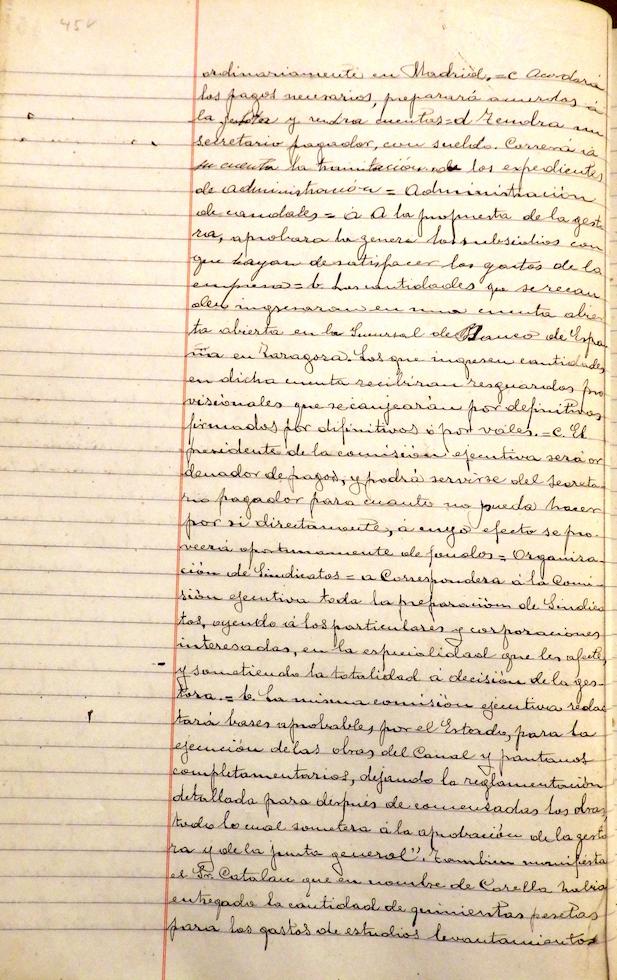 45v
ordinariamente en Madrid. = c Acordará
los pagos necesarios, preparará acuerdos á
la y rendra cuentas = d Tendra un
secretario pagador, con sueldo. Correrá á
su cuenta la tramitación de los expedientes
de administración = Administración
de caudales = a A la propuesta de la gesto
ra, aprobara la genera los subsidios con
que hayan de satisfacer los gastos de la
empresa = b Las cantidades que se recau
den ingresaran en una cuenta abier
ta abierta en la Sucursal de Banco de Espa
ña en Zaragoza. Los que ingresen cantidades
en dicha cuenta recibiran resguardos pro
visionales que se canjearán por definitivos
firmados por difinitivos ó por vales. = c. El
presidente de la comisión ejecutiva será or
denador de pagos, y podrá servirse del secreta
rio pagador para cuanto no pueda hacer
por si directamente, á cuyo efecto se pro-
veerá oportunamente de fondos = Organiza-
ción de Sindicatos = a Corresponderá á la Comi-
sión ejecutiva toda la preparación de Sindica
tos, oyendo á los particulares y corporaciones
interesadas, en la especialidad que les afecte,
y sometiendo la totalidad á decisión de la ges-
tora. = b. La misma comisión ejecutiva redac
tará bases aprobables, por el Estado, para la
ejecución de las obras del Canal y pantanos
completamentarios, dejando la reglamentación
detallada para después de comensadas las obras,
todo lo cual sometera á la aprobación de la gesto
ra y de la junta general". Tambien manifiesta
el Sr. Catalan que en nombre de Carella habia
entregado la cantidad de quinientas pesetas
para los gastos de estudios levantamientos